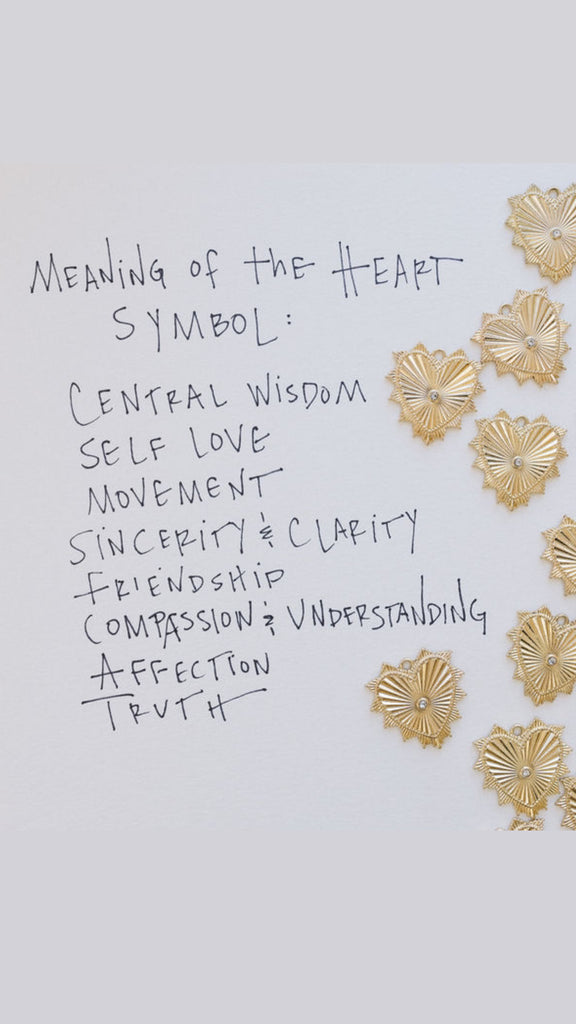 MEANING OF THE HEART
SYMBOL:
CENTRAL WISDOM
SELF LOVE
MOVEMENT
SINCERITY & CLARITY
FRIENDSHIP
COMPASSION & UNDERSTANDING
AFFECTION
TRUTH